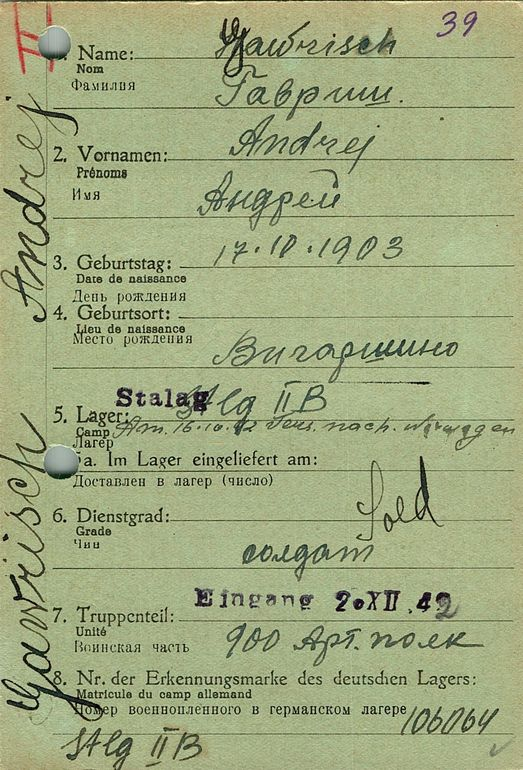 39
III
1. Name: Gawrisch
Nom
Фамилия
Гавриш.
2. Vornamen: Andrej
Prénoms
Имя
Андрей
3. Geburtstag: 17.IV.1903
Date de naissance
День рождения
4. Geburtsort:
Lieu de naissance
Место рождения
Вигаршино
Stalag
5. Lager: Stlg IIB
Camp Am. 16.10.42 Trns. nach. Norwegen
Лагер
5a. Im Lager eingeliefert am:
Доставлен в лагер (число)
6. Dienstgrad: Sold
Grade
Чин
солдат
Eingang 20 XII. 42
7. Truppenteil:
Unité
Воинская часть 900 Арт. полк
8. Nr. der Erkennungsmarke des deutschen Lagers:
Matricule du camp allemand
Номер военнопленного в германском лагере
106064
Stlg IIB
Gawrisch Andrej